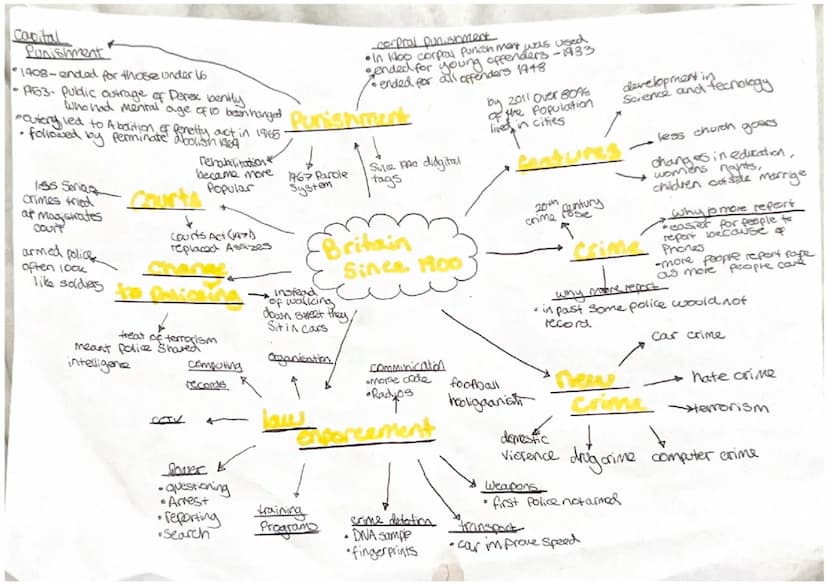 Capital
Punishment
• 1908 - ended for those under 16
• 1953 - Public outrage of Derek bently
who had mental age of 10 been hanged
• outcry led to Abolition of Penelty act in 1965
• followed by perminate abolish 1969
corpral punishment
• In 1900 corpral punishment was used
• ended for young offenders - 1933
• ended for all offenders 1948
Punishment
Rehabilitation
became more
Popular
1967 Parole
System
digital
tags
by 2011 over 80%
of the population
lived in cities
development in
science and tecnology
features
less church goers
changes in education,
womens rights,
children outside marrige
Courts
less serious
crimes tried
at magistrates
court
Courts Act (1971)
replaced Assizes
Britain
Since 1900
20th century
crime rose
Crime
why is more report
• easier for people to
report because of
Phones
• more people report rape
as more people care
why more report
• in past some police would not
record
change
to policing
armed police
often look
like soldies
instead
of walking
down street they
sit in cars
treat of terrorism
meant police shared
intelligence
new
crime
car crime
hate crime
terrorism
computer crime
drug crime
domestic
violence
football
holigaanism
law
enforcement
computing
records
organisation
communication
• morse code
• Radios
CCTV
Power
• questioning
• Arrest
• reporting
• Search
training
Programs
crime detation
• DNA sample
• fingerprints
transport
• car improve speed
weapons
• first police not armed